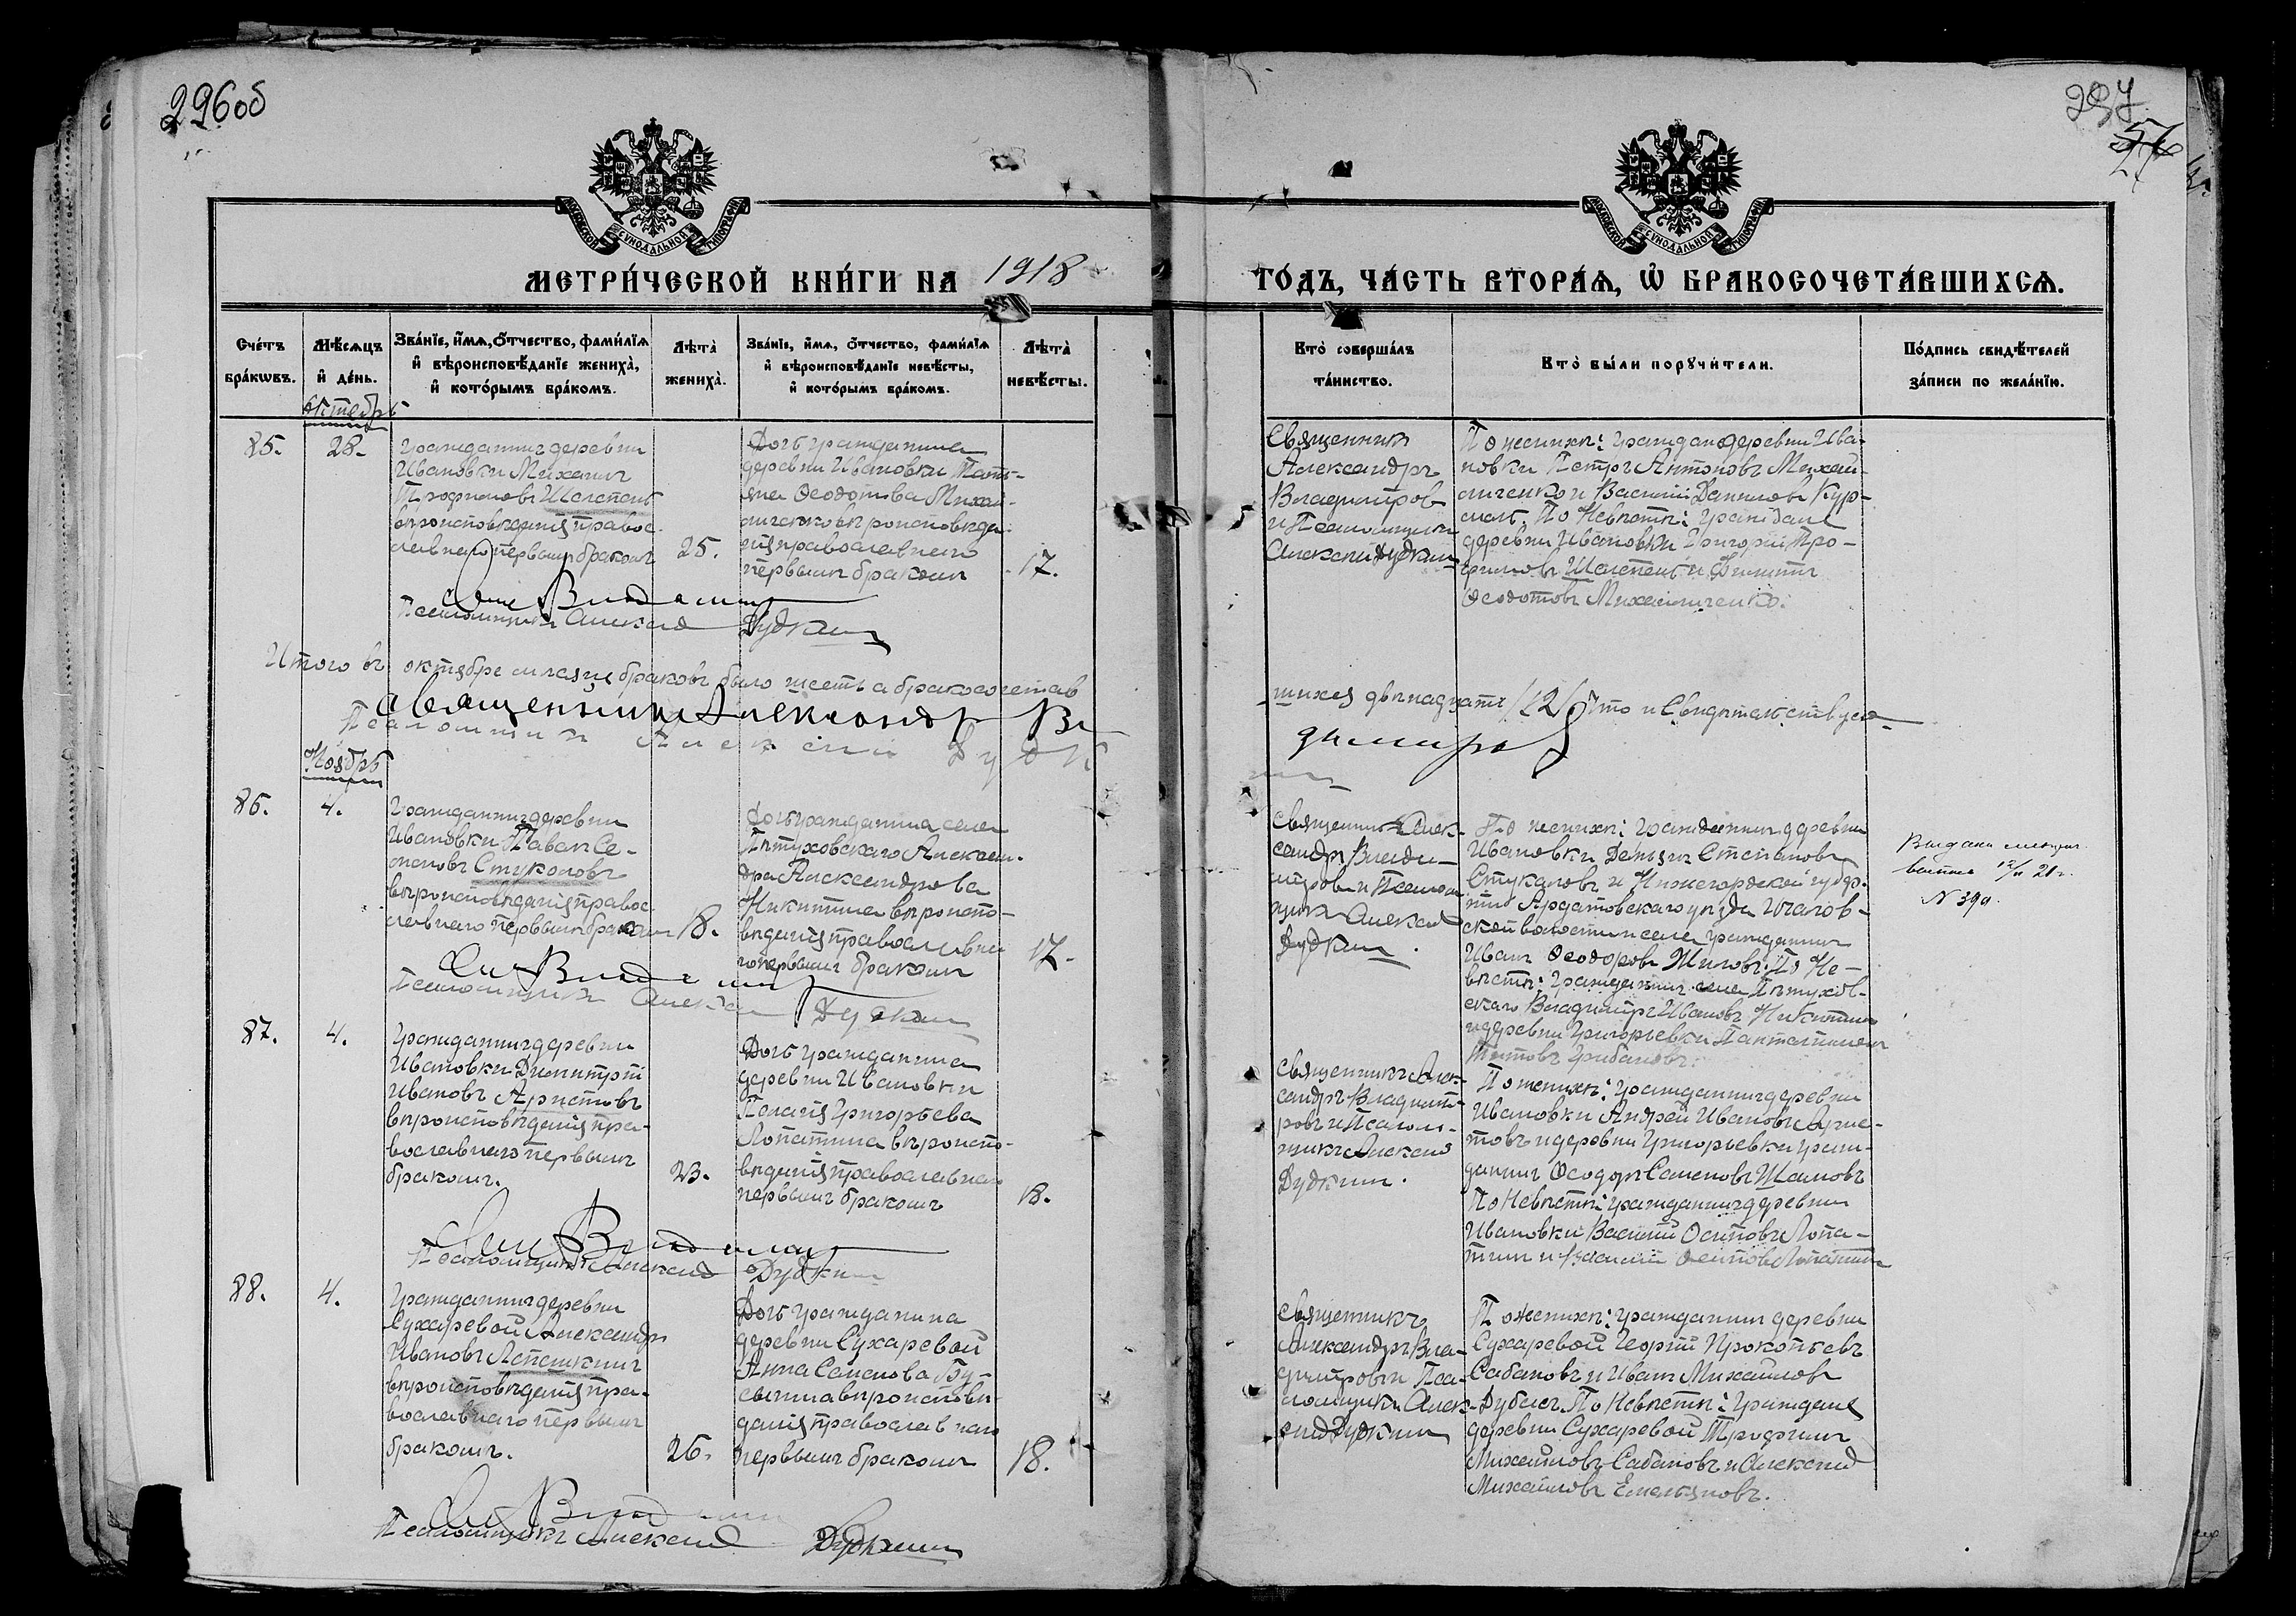 296об
297
57
МОСКОВСКОЙ СУНОДАЛЬНОЙ ТИПОГРАФІИ
МЕТРИ́ЧЕСКОЙ КНИ́ГИ НА 1918
МОСКОВСКОЙ СУНОДАЛЬНОЙ ТИПОГРАФІИ
ГО́ДЪ, ЧА́СТЬ ВТОРА́Ѧ, Ѡ҆ БРАКОСОЧЕТА́ВШИХСѦ.
Сче́тъ
бра́кѡвъ.
Мѣ́сѧцъ
и҆ де́нь.
Зва́нїе, и҆́мѧ, ѻ҆́тчество, фами́лїѧ
и҆ вѣроисповѣ́данїе жениха̀,
и҆ кото́рымъ бра́комъ.
Лѣта̀
жениха̀.
Зва́нїе, и҆́мѧ, ѻ҆́тчество, фами́лїѧ
и҆ вѣроисповѣ́данїе невѣ́сты,
и҆ кото́рымъ бра́комъ.
Лѣта̀
невѣ́сты.
Кто̀ соверша́лъ
та́инство.
Кто̀ бы́ли порꙋчи́тели.
По́дпись свидѣ́телей
за́писи по жела́нїю.
Октябрь
85.
28.
Гражданинъ деревни
Ивановки Михаилъ
Трофимовъ Шелепень
вѣроисповѣданія правос-
лавнаго первымъ бракомъ
25.
Дочь гражданина
деревни Ивановки Тать-
яна Ѳеодотова Михай-
личенко вѣроисповѣда-
нія православнаго
первымъ бракомъ
17.
Священникъ
Александръ
Владиміровъ
и Псаломщикъ
Алексѣй Дудкин
По женихѣ: граждане деревни Ива-
новки Петръ Антоновъ Михай-
личенко и Василій Даниловъ Кур-
По Невѣстѣ: граждане
деревни Ивановки Григорій Тро-
фимовъ Шелепень и Филиппъ
Ѳеодотовъ Михайличенко.
Псаломщикъ Алексѣй Дудкин
Итого въ октябрѣ мѣсяцѣ браковъ было шесть а бракосочетав
шихся двѣнадцать /12/ что и свидѣтельствую
Священникъ Александръ Вла
диміров
Псаломщикъ Алексѣй Дудк
ин
Ноябрь
86.
4.
Гражданинъ деревни
Ивановки Павелъ Се-
меновъ Стукаловъ
вѣроисповѣданія правос-
лавнаго первымъ бракомъ
18.
Дочь гражданина села
Пѣтуховскаго Алексан-
дра Александрова
Никитина вѣроиспо-
вѣданія православна
го первымъ бракомъ
17.
Священникъ Алек-
сандръ Влади-
міровъ и Псалом-
щикъ Алексѣй
Дудкин.
По женихѣ: гражданинъ деревни
Ивановки Степановъ
Стукаловъ и Нижегородской губер-
ніи Ардатовскаго уѣзда
ской волости и села гражданинъ
Иванъ Ѳеодоровъ Жиловъ. По Не-
вѣстѣ: гражданинъ села Пѣтухов-
скаго Владиміръ Ивановъ Никитинъ
и деревни Григорьевки Пантелеимонъ
Титовъ Грибановъ.
Выдана
N 399.
Псаломщикъ Алексѣй Дудкин
87.
4.
Гражданинъ деревни
Ивановки Димитрій
Ивановъ Аристовъ
вѣроисповѣданія пра-
вославнаго первымъ
бракомъ.
23.
Дочь гражданина
деревни Ивановки
Пелагія Григорьева
Лопатина вѣроиспо-
вѣданія православнаго
первымъ бракомъ
18.
Священникъ Алек-
сандръ Владимі-
ровъ и Псалом-
щикъ Алексѣй
Дудкин.
По женихѣ: гражданинъ деревни
Ивановки Андрей Ивановъ Арис-
товъ и деревни Григорьевки граж-
данинъ Ѳеодоръ Семеновъ Шамовъ
По Невѣстѣ: гражданинъ деревни
Ивановки Василій Осиповъ Лопа-
тинъ и Осиповъ Лопатинъ
Псаломщикъ Алексѣй Дудкин
88.
4.
Гражданинъ деревни
Сухаревой Александръ
Ивановъ Лепешкинъ
вѣроисповѣданія пра-
вославнаго первымъ
бракомъ.
26.
Дочь гражданина
деревни Сухаревой
Анна Семенова Бу-
сыгина вѣроисповѣ-
данія православнаго
первымъ бракомъ
18.
Священникъ
Александръ Вла-
диміровъ и Пса-
ломщикъ Алек-
сѣй Дудкин
По женихѣ: гражданинъ деревни
Сухаревой Георгій Прокопьевъ
Сабановъ и Иванъ Михайловъ
По Невѣстѣ: граждане
деревни Сухаревой Трофимъ
Михайловъ Сабановъ и Алексѣй
Михайловъ Емельяновъ.
Псаломщикъ Алексѣй Дудкин